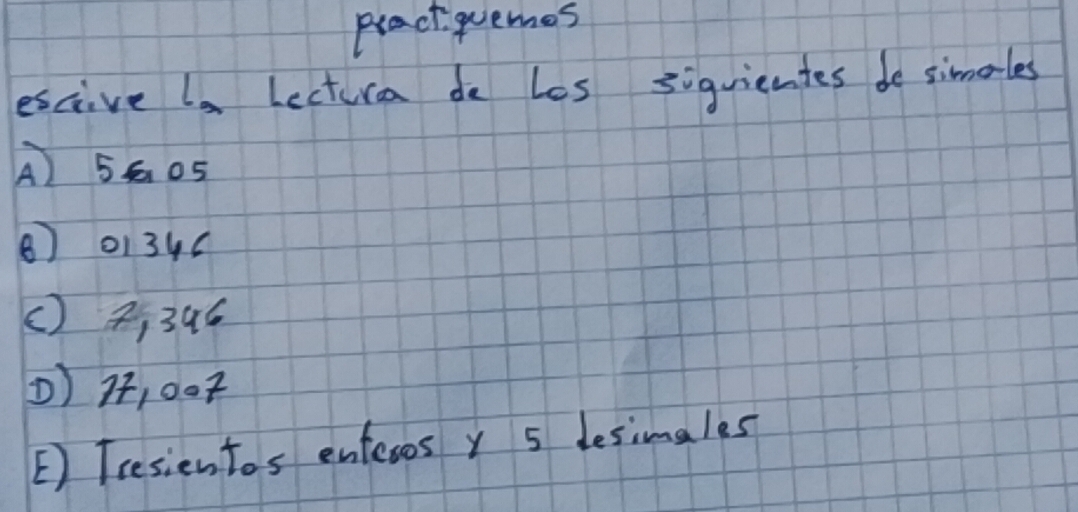 practiquemos
escrive la Lectura de Los siguientes de simales
A) 5 05
B) 0,346
C) 7,346
D) 17,007
E) Tresientos enteros y 5 desimales